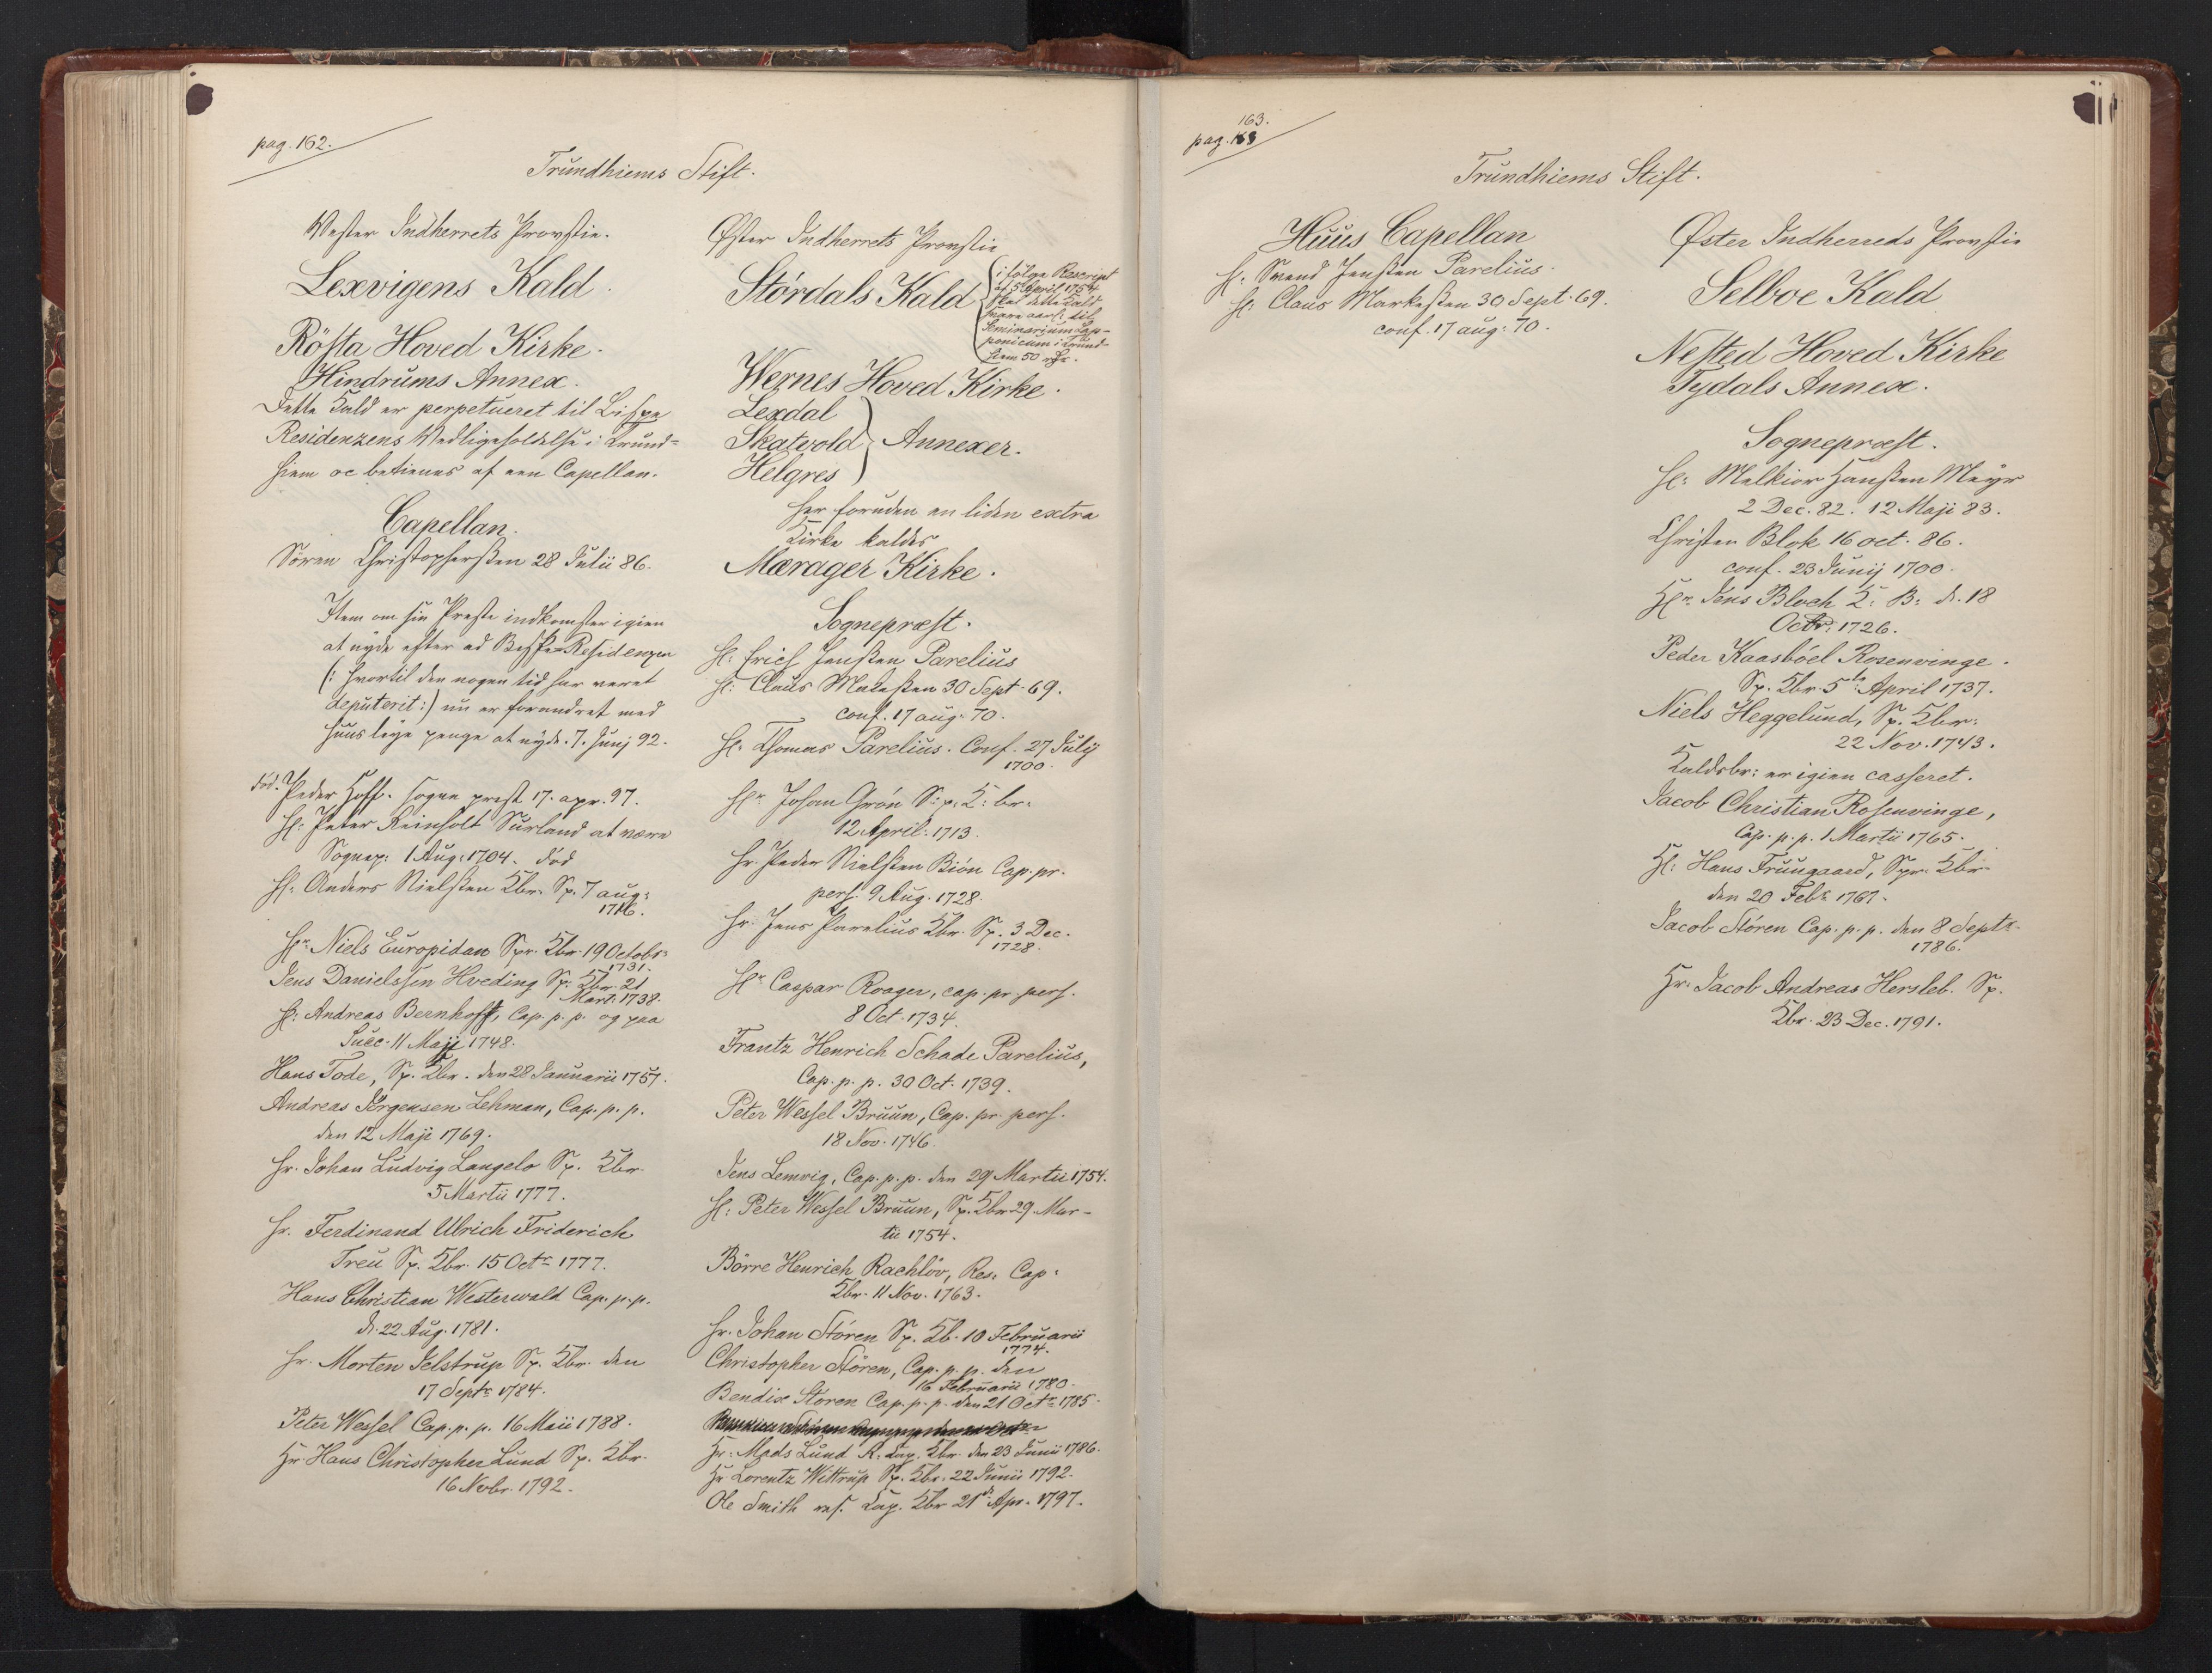 pag. 162.
Trundhiems Stift.
Wester Indherrets Provstie.
Lexvigens Kald.
Rösta Hoved Kirke.
Hindrums Annex.
Dette Kald er perpetueret til Bispe
Residenzens Vedligeholdelse i Trund-
hiem oc betienes af een Capellan.
Capellan.
Sören Christophersen 28 Julii 86.
Item om sin Preste indkomster igien
at nyde efter ad Bispe-Residenzen
(: hvortil den nogen tid har veret
deputerit :) nu er forandret med
huus leye penge at nyde. 7. Junj 92.
död. Peder Hoff. sogne prest 17. apr. 97.
Hr: Peter Reinholt Surland at være
Sognep: 1 Aug: 1704. död
Hr: Anders Nielsen Kbr. Sp. 7 aug:
1716.
Hr. Niels Europidan Spr. Kbr. 19 Octobr:
1731.
Jens Danielssen Hveding Sp: Kbr. 21
Mart: 1738.
Hr: Andreas Bernhoft, Cap. p. p. og paa
Succ. 11 Maji 1748.
Hans Tode, Sp. Kbr. den 28 Januarii 1757.
Andreas Jörgensen Lehman, Cap. p. p.
den 12 Maji 1769.
Hr. Johan Ludvig Langelo Sp. Kbr.
5 Martii 1777.
Hr. Ferdinand Ulrich Friderich
Treu Sp. Kbr. 15 Octr 1777.
Hans Christian Westerwald Cap. p. p.
d. 22 Aug. 1781.
Hr. Morten Jelstrup Sp. Kbr. den
17 Septr 1784.
Peter Wessel Cap. p. p. 16 Maii 1788.
Hr. Hans Christopher Lund Sp. Kbr.
16 Novbr. 1792.
Øster Indherrets Provstie
Stördals Kald
i fölge Rescript
af 5 April 1754
skal dette Kald
svare aarl: til
Seminarium Lap-
ponicum i Trund-
hiem 50 rdr.
Wernes Hoved Kirke.
Lexdal
Skatvold } Annexer.
Helgres
her foruden en liden extra
Kirke kaldes
Mærager Kirke.
Sognepræst.
Hr: Erich Jensen Parelius
Hr: Claus Matessen 30 Sept. 69.
conf. 17 aug. 70.
Hr. Thomas Parelius. Conf. 27 July
1700.
Hr. Johan Grön S: p. K: br.
12 April. 1713.
Hr. Peder Nielsen Biön Cap. pr.
pers. 9 Aug. 1728.
Hr. Jens Parelius Kbr. Sp. 3 Dec.
1728.
Hr Caspar Roager, cap. pr. pers.
8 Oct. 1734.
Frantz Henrich Schade Parelius,
Cap. p. p. 30 Oct. 1739.
Peter Wessel Bruun, Cap. pr. pers.
18 Nov. 1746.
Jens Lemvig, Cap. p. p. den 29 Martii 1754.
Hr: Peter Wessel Bruun, Sp. Kbr 29 Mar-
tii 1754.
Börre Henrich Rachlöv, Res. Cap.
Kbr. 11 Nov. 1763.
Hr. Johan Stören Sp. Kb. 10 Februarii
1774.
Christopher Stören, Cap. p. p. den
16 Februarii 1780.
Bendix Stören Cap. p. p. den 21 Octr 1785.
Hr. Mads Lund R. Cap. Kbr. den 23 Junii 1786.
Hr Lorentz Wittrup Sp. Kbr. 22 Junii 1792.
Ole Smith res. Cap. Kbr 21de Apr. 1797.
163.
pag.
Trundhiems Stift.
Huus Capellan
Hr. Svend Jensen Parelius.
Hr: Claus Markessen 30 Sept. 69.
conf. 17 aug: 70.
Øster Indherreds Provstie
Selboe Kald
Nested Hoved Kirke
Tydals Annex.
Sognepræst.
Hr: Melkior Hansen Meyr
2 Dec. 82. 12 Maji 83.
Christen Blok 16 oct. 86.
conf. 23 Junij 1700.
Hr. Jens Bloch K: B: d. 18
Octbr: 1726.
Peder Kaasböel Rosenvinge.
Sp. Kbr. 5te April 1737.
Niels Heggelund, Sp. Kbr.
22 Nov. 1743.
Kaldsbr: er igien casseret.
Jacob Christian Rosenvinge,
Cap. p. p. 1 Martii 1765.
Hr: Hans Fruugaard, Spr. Kbr
den 20 Febr 1767.
Jacob Stören Cap. p. p. den 8 Septr.
1786.
Hr. Jacob Andreas Hersleb. Sp.
Kbr. 23 Dec. 1791.